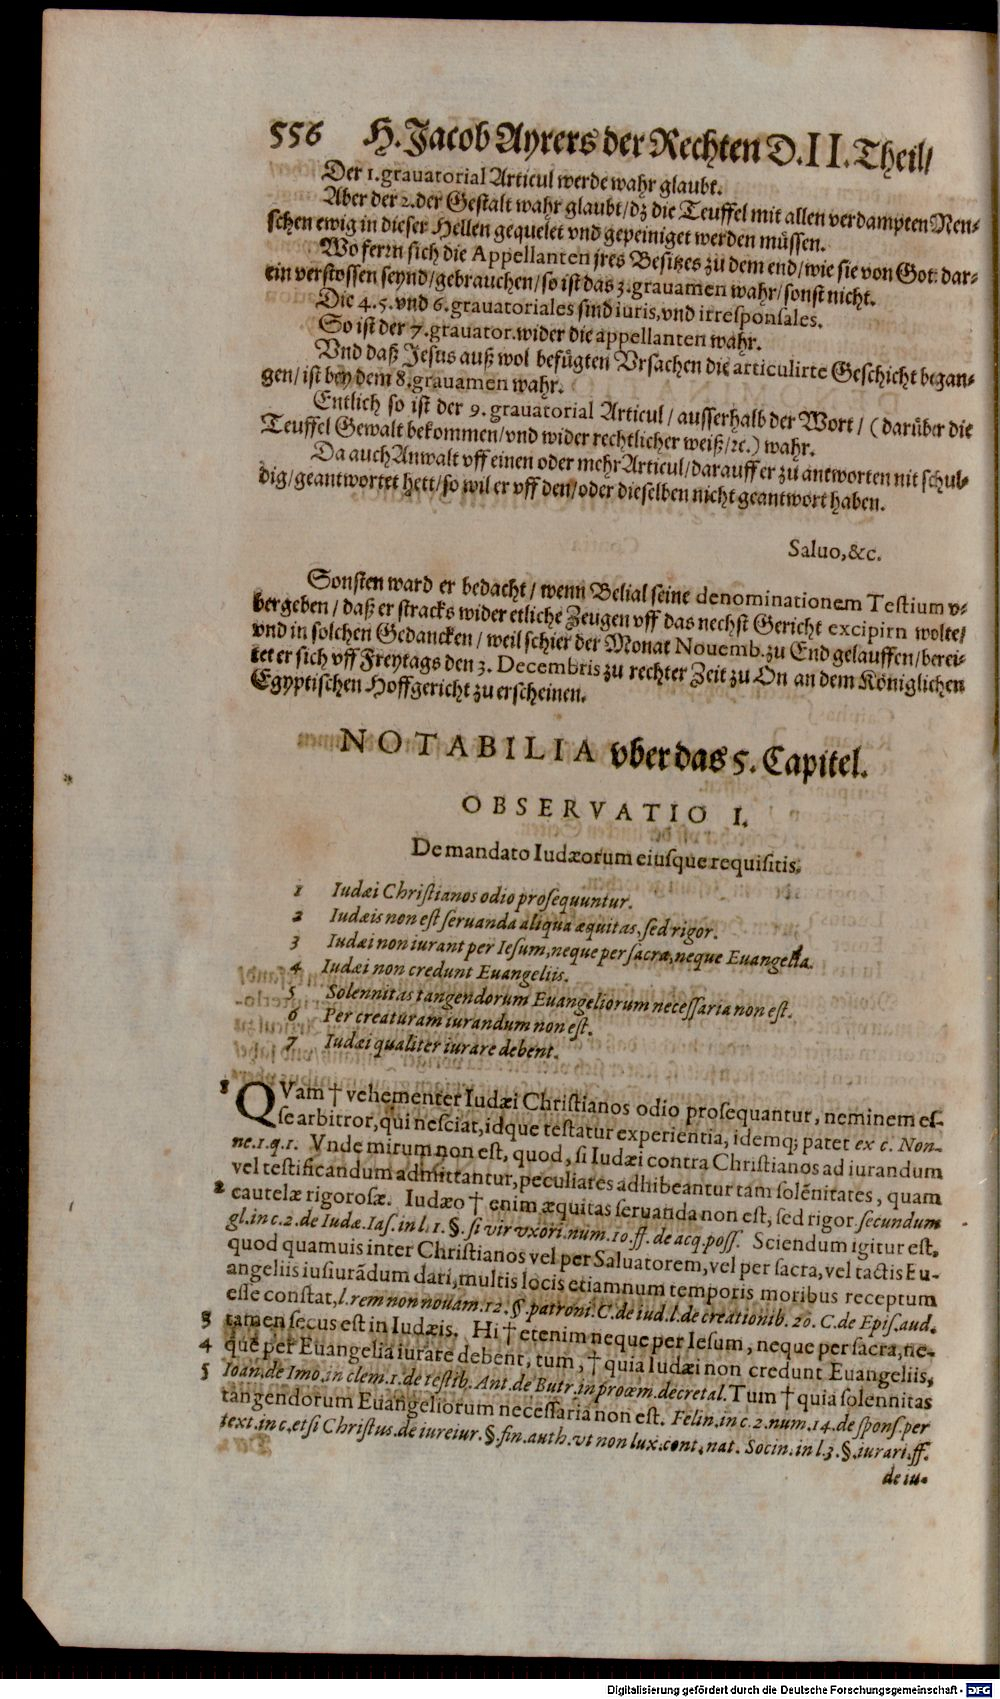 556 H. Jacob Ayrers der Rechten D. II. Theil/
Der 1. grauatorial Articul werde wahr glaubt.
Aber der 2. der Gestalt wahr glaubt/ dz die Teuffel mit allen verdampten Men-
schen ewig in dieser Hellen gequelet vnd gepeiniget werden müssen.
Wo ferrn sich die Appellanten jres Besitzes zu dem end/ wie sie von Got: dar-
ein verstossen seynd/ gebrauchen/ so ist das 3. grauamen wahr/ sonst nicht.
Die 4. 5. vnd 6. grauatoriales sind iuris, vnd irresponsales.
So ist der 7. grauator. wider die appellanten wahr.
Vnd daß Jesus auß wol befügten Vrsachen die articulirte Geschicht began-
gen/ ist bey dem 8. grauamen wahr.
Entlich so ist der 9. grauatorial Articul/ ausserhalb der Wort/ (darüber die
Teuffel Gewalt bekommen/ vnd wider rechtlicher weiß/ ꝛc.) wahr.
Da auch Anwalt vff einen oder mehr Articul/ darauff er zu antworten nit schul-
dig/ geantwortet hett/ so wil er vff den/ oder dieselben nicht geantwort haben.
Saluo, &c.
Sonsten ward er bedacht/ wenn Belial seine denominationem Testium v-
bergeben/ daß er stracks wider etliche Zeugen vff das nechst Gericht excipirn wolte/
vnd in solchen Gedancken/ weil schier der Monat Nouemb. zu End gelauffen/ berei-
tet er sich vff Freytags den 3. Decembris zu rechter Zeit zu On an dem Königlichen
Egyptischen Hoffgericht zu erscheinen.
NOTABILIA vber das 5. Capitel.
OBSERVATIO I.
De mandato Iudæorum eiusque requisitis.
1 Iudæi Christianos odio prosequuntur.
2 Iudæis non est seruanda aliqua æquitas, sed rigor.
3 Iudæi non iurant per Iesum, neque per sacra, neque Euangelia.
4 Iudæi non credunt Euangeliis.
5 Solennitas tangendorum Euangeliorum necessaria non est.
6 Per creaturam iurandum non est.
7 Iudæi qualiter iurare debent.
1 QVam † vehementer Iudæi Christianos odio prosequantur, neminem es-
se arbitror, qui nesciat, idque testatur experientia, idemq; patet ex c. Non-
ne. 1. q. 1. Vnde mirum non est, quod, si Iudæi contra Christianos ad iurandum
vel testificandum admittantur, peculiares adhibeantur tam solẽnitates, quam
2 cautelæ rigorosæ. Iudæo † enim æquitas seruanda non est, sed rigor secundum
gl. in c. 2. de Iudæ. Ias. in l. 1. §. si vir vxori. num. 10. ff. de acq. poss. Sciendum igitur est,
quod quamuis inter Christianos vel per Saluatorem, vel per sacra, vel tactis Eu-
angeliis iusiurãdum dari, multis locis etiamnum temporis moribus receptum
esse constat, l. rem non nouam. 12. §. patroni. C. de iud. l. de creationib. 20. C. de Epis. aud.
3 tamen secus est in Iudæis. Hi † etenim neque per Iesum, neque per sacra, ne-
4 que per Euangelia iurare debent, tum, † quia Iudæi non credunt Euangeliis,
5 Ioan. de Imo. in clem. 1. de testib. Ant. de Butr. in proœm. decretal. Tum † quia solennitas
tangendorum Euangeliorum necessaria non est. Felin. in c. 2. num. 14. de spons. per
text. in c. etsi Christus. de iureiur. §. fin. auth. vt non lux. cont. nat. Socin. in l. 3. §. iurari. ff.
de iu-
Digitalisierung gefördert durch die Deutsche Forschungsgemeinschaft - DFG